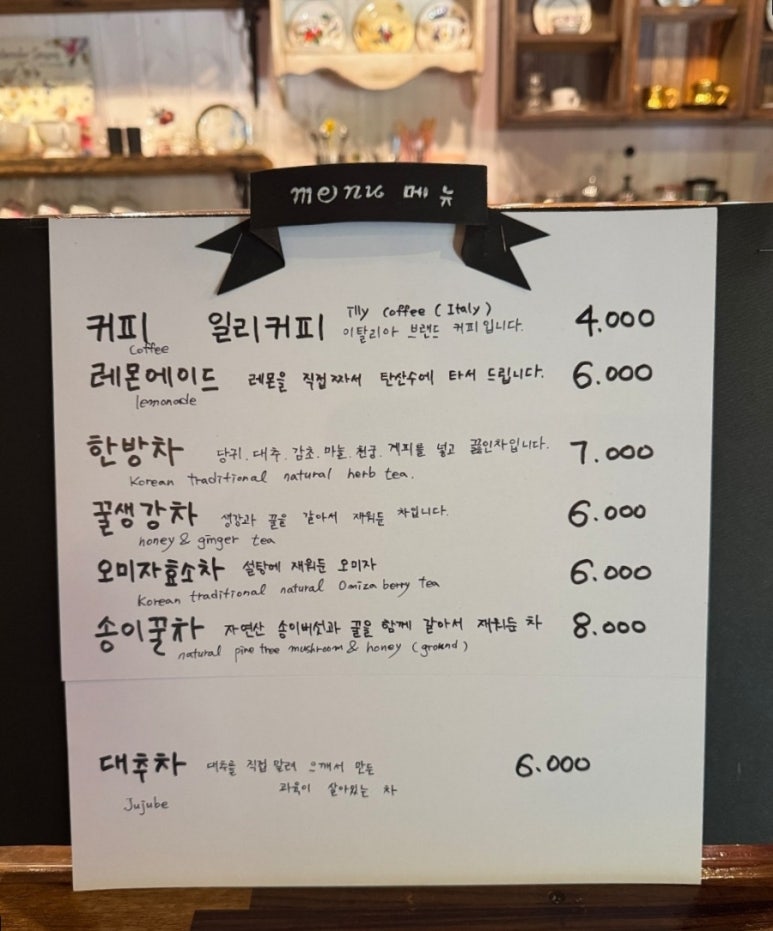 menu 메뉴
커피 일리커피 Illy coffee (Italy) 4.000
Coffee 이탈리아 브랜드 커피입니다.
레몬에이드 레몬을 직접 짜서 탄산수에 타서 드립니다. 6.000
lemonade
한방차 당귀. 대추. 감초. 마늘. 천궁. 계피를 넣고 끓인차입니다. 7.000
Korean traditional natural herb tea.
꿀생강차 생강과 꿀을 갈아서 재워둔 차입니다. 6.000
honey & ginger tea
오미자효소차 설탕에 재워둔 오미자 6.000
Korean traditional natural Omiza berry tea
송이꿀차 자연산 송이버섯과 꿀을 함께 갈아서 재워둔 차 8.000
natural pine tree mushroom & honey (ground)
대추차 대추를 직접 말려 으깨서 만든 6.000
과육이 살아있는 차
Jujube